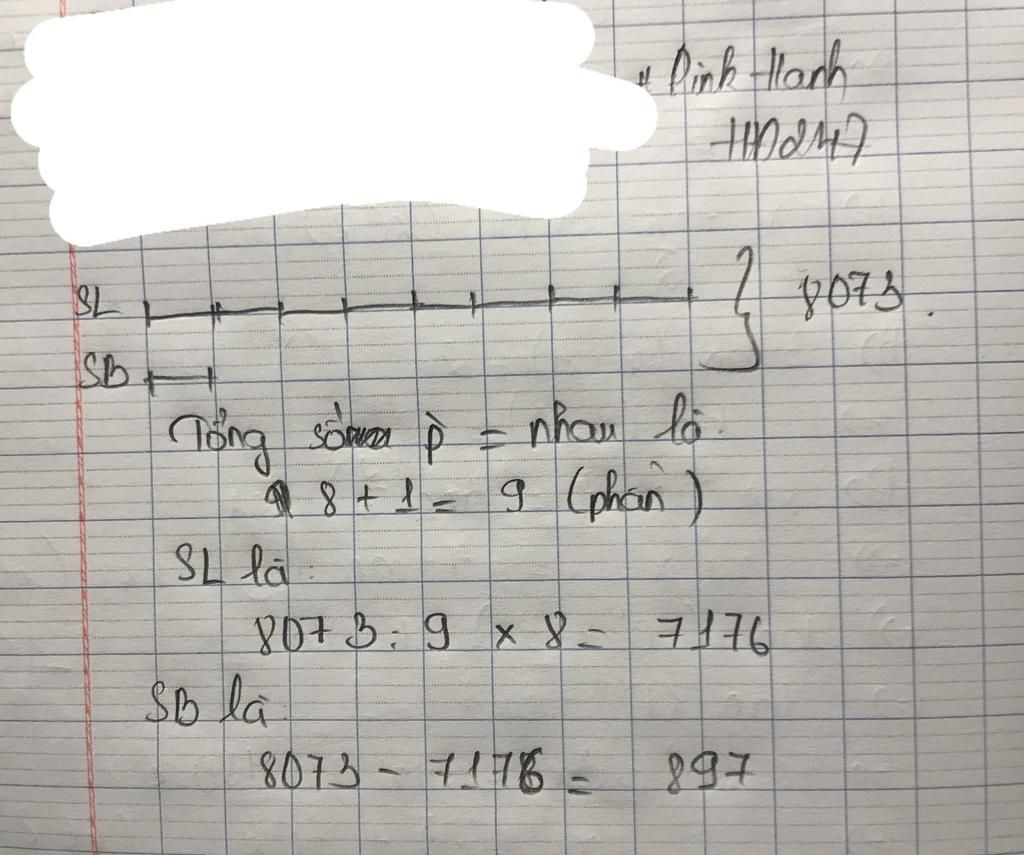 Đinh Hạnh
HD247
SL
8073.
SB
Tổng số p = nhau là
8 + 1 = 9 (phần)
SL là:
8073 : 9 × 8 = 7176
SB là:
8073 - 7176 = 897